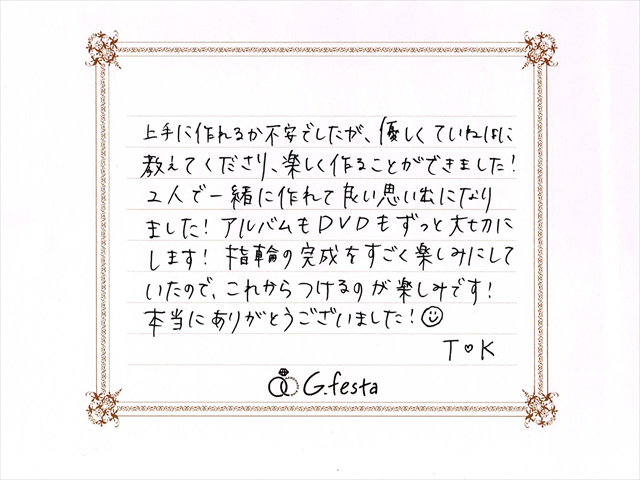 上手に作れるか不安でしたが、優しくていねいに
教えてくださり、楽しく作ることができました!
2人で一緒に作れて良い思い出になり
ました! アルバムもDVDもずっと大切に
します! 指輪の完成をすごく楽しみにして
いたので、これからつけるのが楽しみです!
本当にありがとうございました!☺
T♥K
G.festa